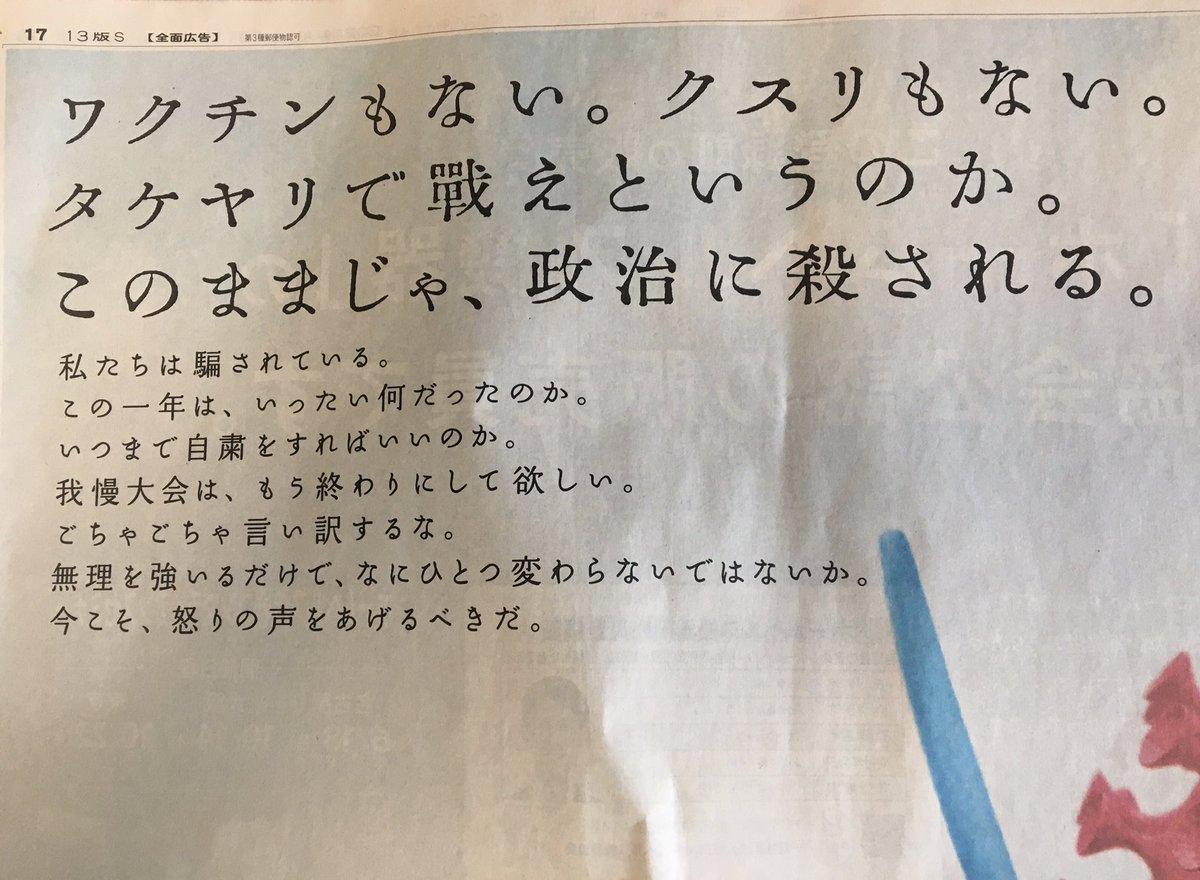 17 13版S 【全面広告】 第3種郵便物認可
ワクチンもない。クスリもない。
タケヤリで戰えというのか。
このままじゃ、政治に殺される。
私たちは騙されている。
この一年は、いったい何だったのか。
いつまで自粛をすればいいのか。
我慢大会は、もう終わりにして欲しい。
ごちゃごちゃ言い訳するな。
無理を強いるだけで、なにひとつ変わらないではないか。
今こそ、怒りの声をあげるべきだ。